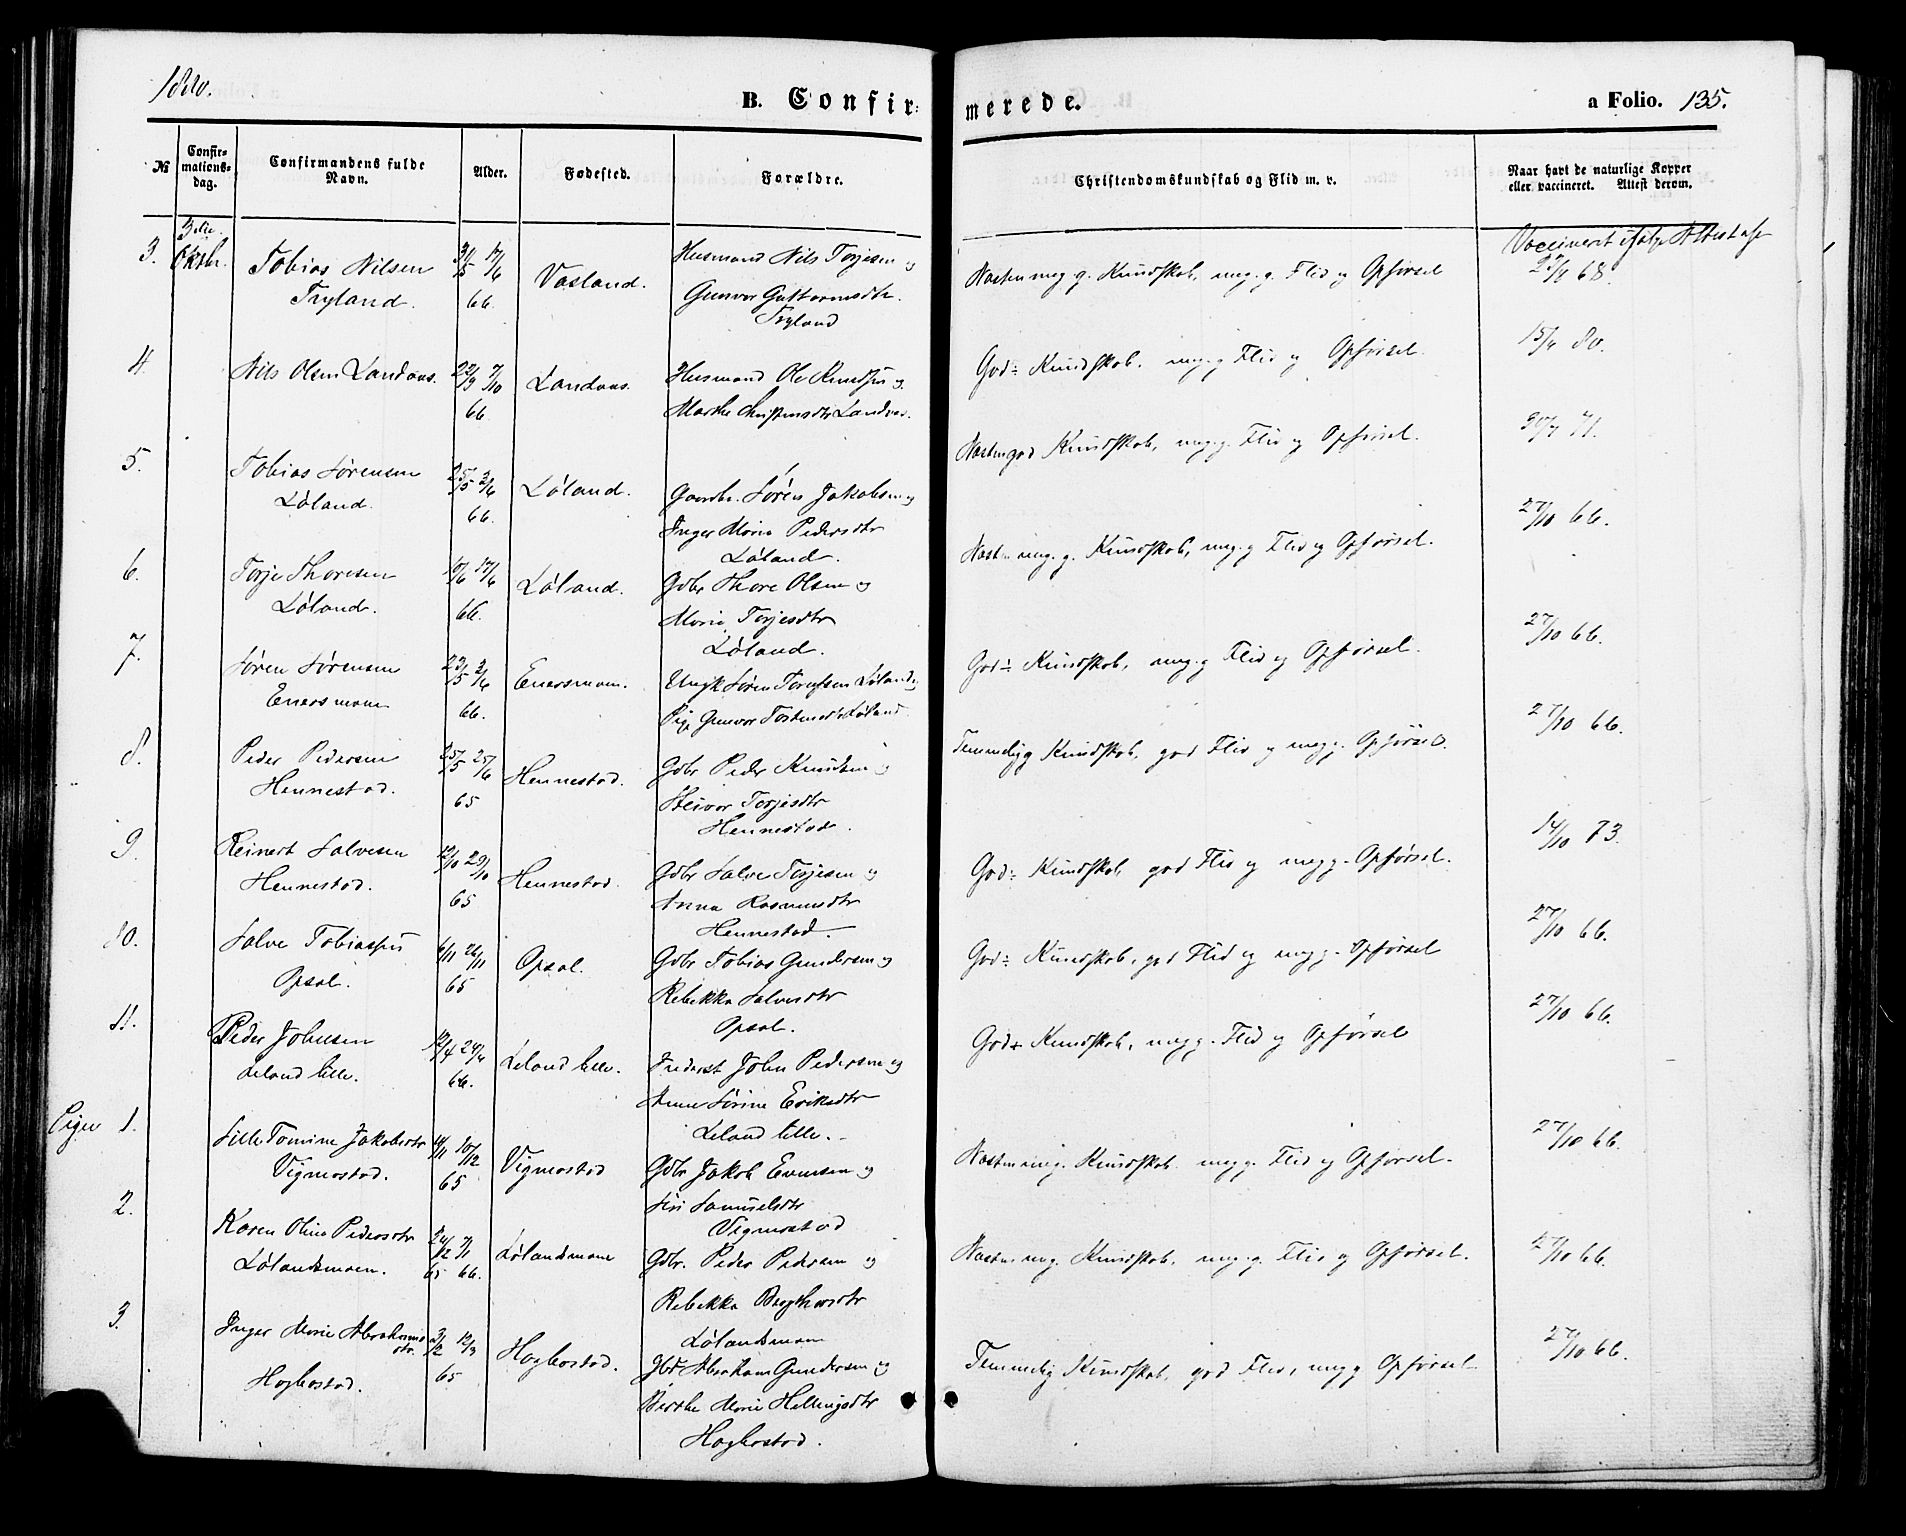 1880.
B. Confir-
merede.
a Folio. 135.
№
Confir-
mations-
dag.
Confirmandens fulde
Navn.
Alder.
Fødested.
Forældre.
Christendomskundskab og Flid m. v.
Naar havt de naturlige Kopper
eller vaccineret. Attest derom.
3die
Oktbr.
3.
Tobias Nilsen
Tryland.
31/5 17/6
66.
Vasland.
Husmand Nils Torjesen og
Gunvor Guttormsdtr.
Tryland
Næsten meg. g. Kundskab, meg. g. Flid og Opførsel
Vaccineret ifølge Attest af
68.
4.
Nils Olsen Landaas.
22/9 7/10
66.
Landaas.
Husmand Ole Knudsen og
Marthe Landaas.
God ÷ Kundskab. meg. g Flid og Opførsel.
15/4 80.
5.
Tobias Sørensen
Løland.
25/5 3/6
66.
Løland.
Gaardbr. Søren Jakobsen og
Inger Marie Pedersdtr
Løland.
Næsten god Kundskab, meg. g. Flid og Opførsel.
30/7 71.
6.
Torje Thoresen
Løland.
10/6 17/6
66.
Løland.
Gdbr Thore Olsen og
Marie Torjesdtr
Løland.
Næsten meg. g. Kundskab, meg. g Flid og Opførsel.
27/10 66.
7.
Søren Sørensen
Enersmoen
23/5 3/6
66.
Enersmoen.
Ungk Søren Løland og
Pige Gunvor Løland
God ÷ Kundskab, meg. g Flid og Opførsel.
27/10 66.
8.
Peder Pedersen
Hennestad.
25/5 25/6
65
Hennestad.
Gdbr Peder Knudsen og
Torjesdtr
Hennestad.
Temmelig g Kundskab, god Flid og meg g. Opførsel.
27/10 66.
9.
Reinert Salvesen
Hennestad.
12/10 29/10
65
Hennestad.
Gdbr Salve Torjesen og
Anna Rasmusdtr
Hennestad.
God ÷ Kundskab, god Flid og meg g. Opførsel.
14/10 73.
10.
Salve Tobiassen
Opsal.
6/11 26/11
65
Opsal.
Gdbr Tobias Gundersen og
Rebekka Salvesdtr
Opsal.
God ÷ Kundskab, god Flid og meg g. Opførsel
27/10 66.
11.
Peder Johnsen
Leland lille.
12/4 24/6
66.
Leland lille.
Inderst John Pedersen og
Anne Sørine Eriksdtr
Leland lille.
God + Kundskab, meg g. Flid og Opførsel
27/10 66.
Piger 1.
Sille Tomine Jakobsdtr
Vigmostad.
11/11 10/12
65
Vigmostad
Gdbr Jakob Evensen og
Siri Samuelsdtr
Vigmostad
Næsten meg. Kundskab. meg g. Flid og Opførsel.
27/10 66.
2.
Karen Oline Pedersdtr
Lølandsmoen.
24/12 7/1
65 66.
Lølandsmoen
Gdbr. Peder Pedersen og
Rebekka Bergthorsdtr
Lølandsmoen
Næsten meg. Kundskab, meg. g. Flid og Opførsel.
27/10 66.
3.
Inger Marie Abrahams
dtr.
Høgbostad.
3/2 12/3
65
Høgbostad.
Gbr Abraham Gundersen og
Berthe Marie Hellingsdtr
Høgbostad.
Temmelig Kundskab, god Flid, meg g Opførsel
27/10 66.